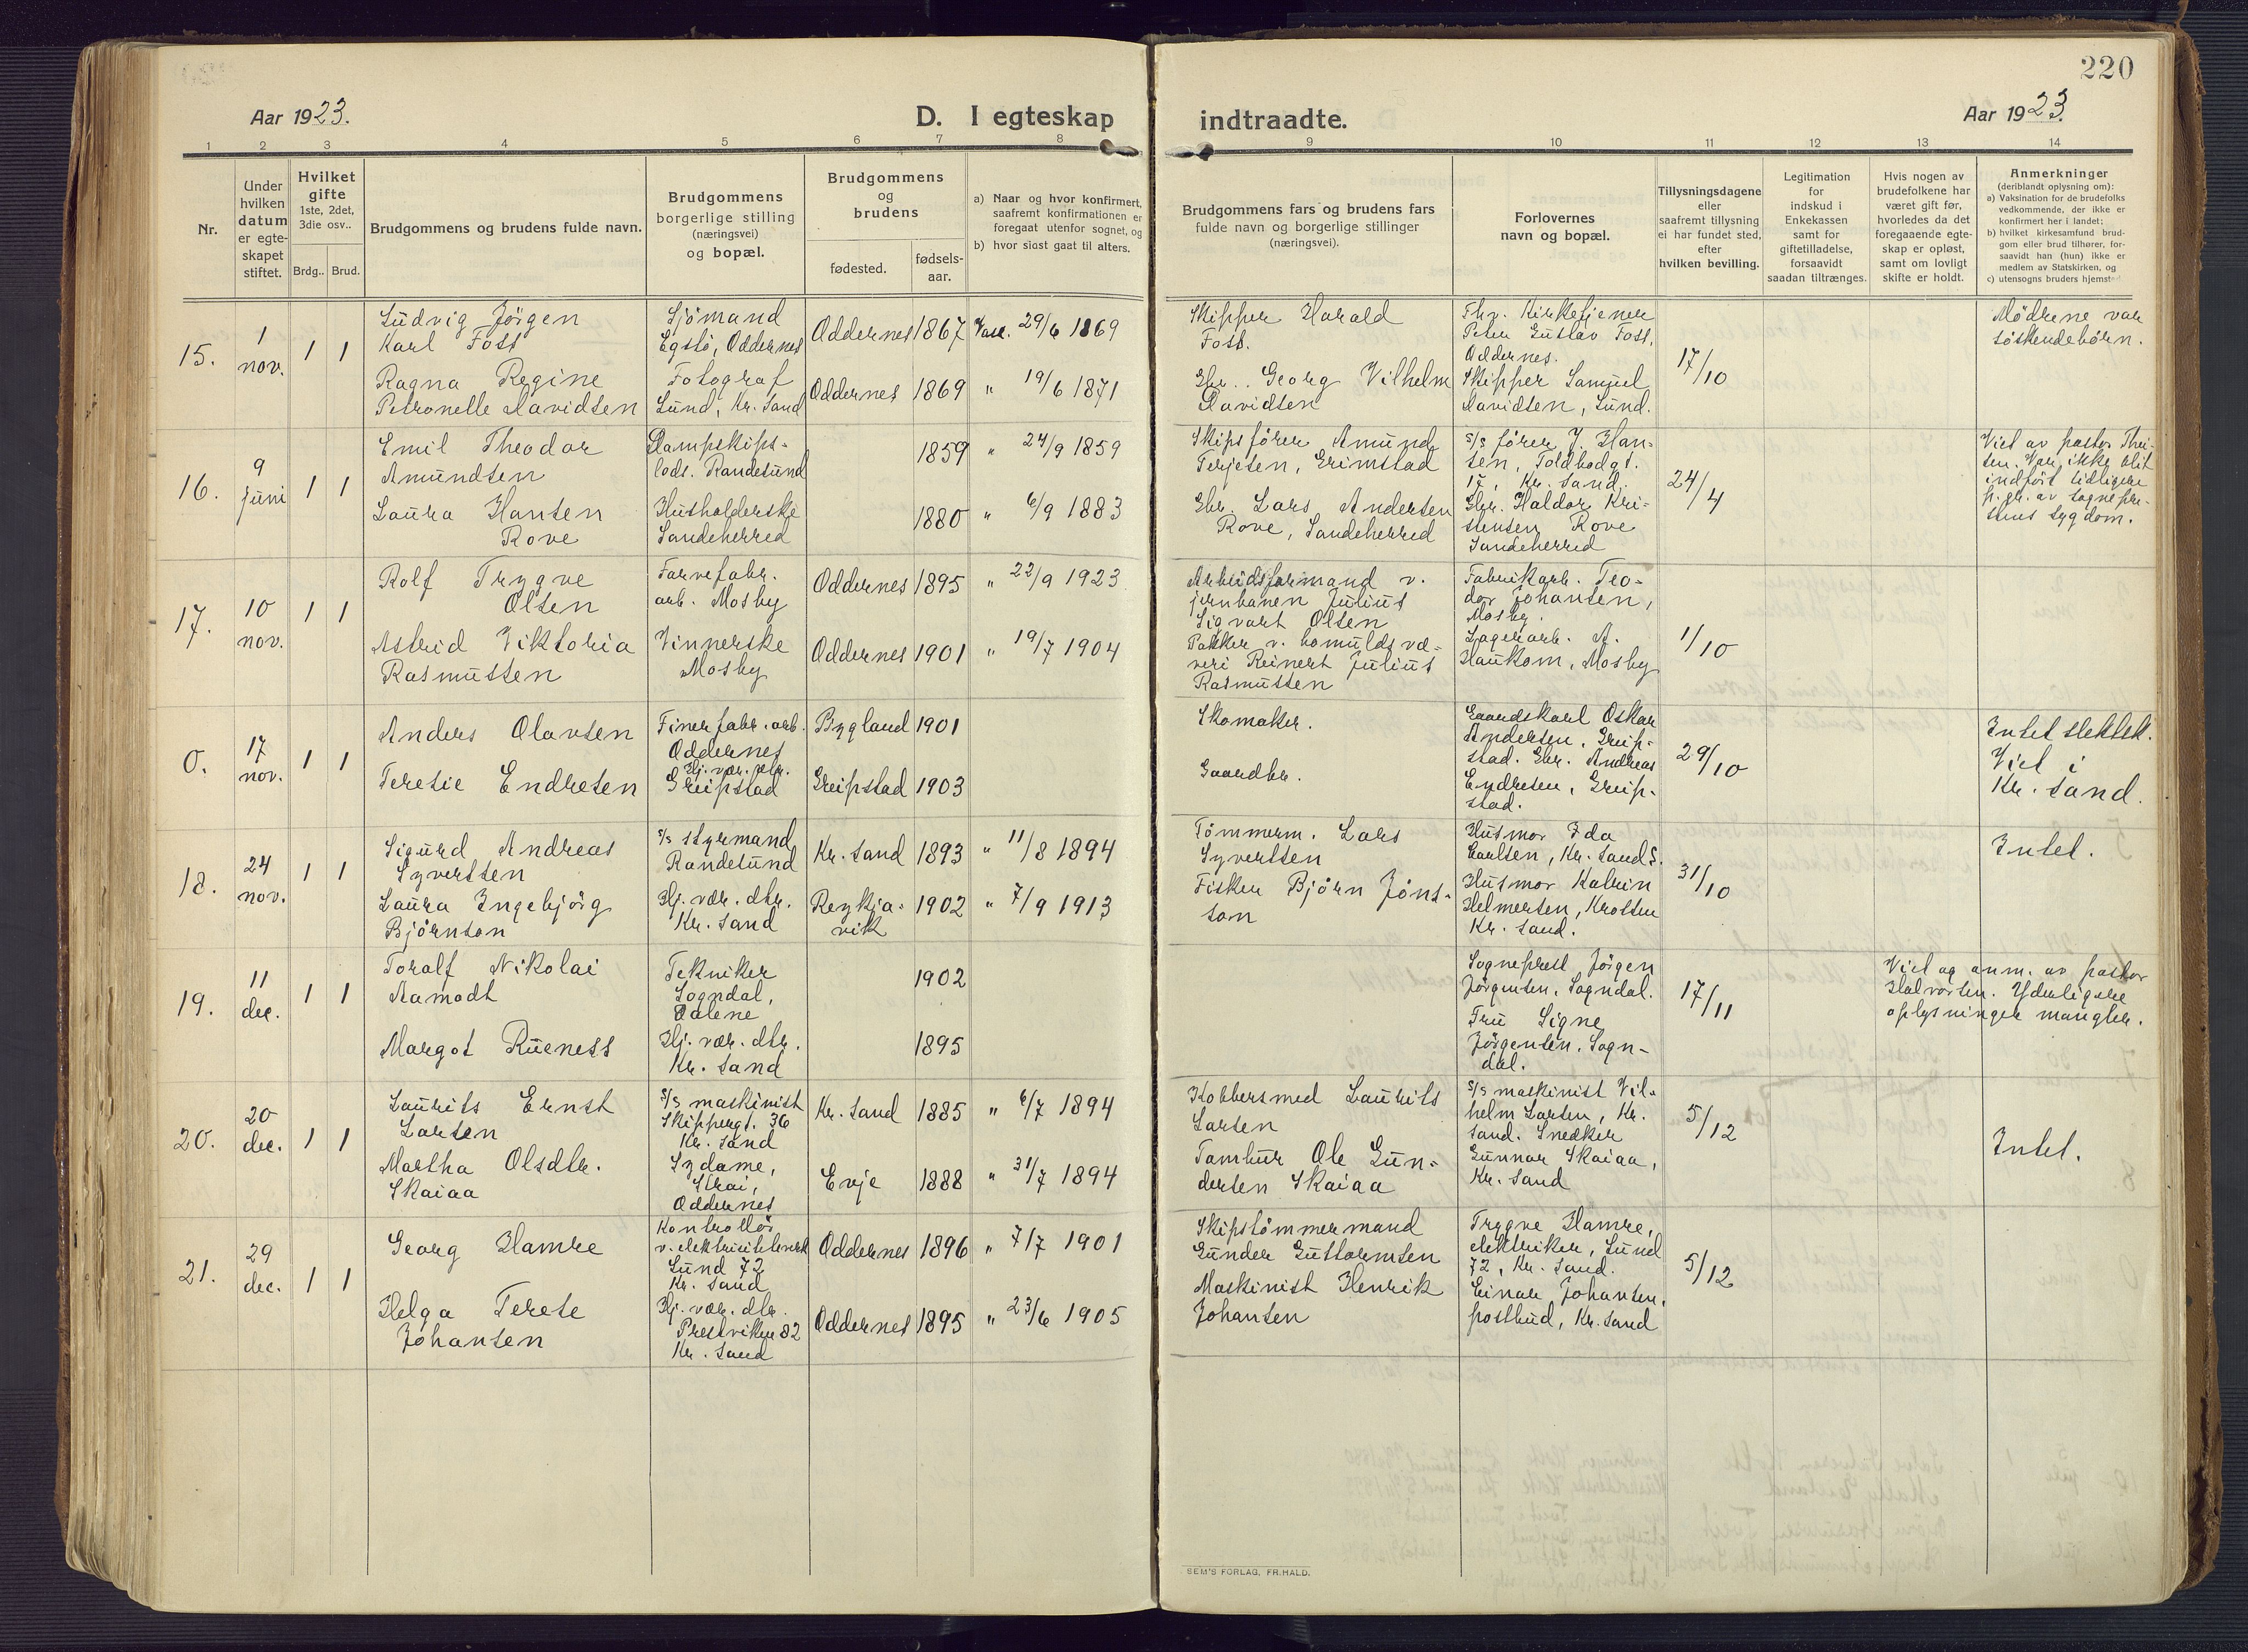 220
Aar 1923.
D. I egteskap
indtraadte.
Aar 1923.
1 2 3 4 5 6 7 8 9 10 11 12 13 14
Nr.
Under
hvilken
datum
er egte-
skapet
stiftet.
Hvilket
gifte
1ste, 2det,
3die osv..
Brdg.. Brud.
Brudgommens og brudens fulde navn.
Brudgommens
borgerlige stilling
(næringsvei)
og bopæl.
Brudgommens
og
brudens
fødested.
fødsels-
aar.
a) Naar og hvor konfirmert,
saafremt konfirmationen er
foregaat utenfor sognet, og
b) hvor sidst gaat til alters.
Brudgommens fars og brudens fars
fulde navn og borgerlige stillinger
(næringsvei).
Forlovernes
navn og bopæl.
Tillysningsdagene
eller
saafremt tillysning
ei har fundet sted,
efter
hvilken bevilling.
Legitimation
for
indskud i
Enkekassen
samt for
giftetilladelse,
forsaavidt
saadan tiltrænges.
Hvis nogen av
brudefolkene har
været gift før,
hvorledes da det
foregaaende egte-
skap er opløst,
samt om lovligt
skifte er holdt.
Anmerkninger
(deriblandt oplysning om):
a) Vaksination for de brudefolks
vedkommende, der ikke er
konfirmert her i landet;
b) hvilket kirkesamfund brud-
gom eller brud tilhører, for-
saavidt han (hun) ikke er
medlem av Statskirken, og
c) utensogns bruders hjemsted
15.
1
nov.
1 1
Ludvig Jörgen
Karl Foss
Sjömand
Egsö, Oddernes
Oddernes 1867 Vacc. 29/6 1869
Ragna Regine
Petronelle Davidsen
Fotograf
Lund, Kr. sand
Oddernes 1869 " 19/6 1871
Skipper Harald
Foss.
Gbr. Georg Vilhelm
Davidsen
Fhv. Kirketjener
Peter Gustav Foss,
Oddernes.
Skipper Samuel
Davidsen, Lund.
17/10
Mödrene var
söskendebörn.
16.
9
juni
1 1
Emil Theodor
Amundsen
Dampskips-
lods. Randesund
1859 " 24/9 1859
Laura Hansen
Rove
Husholderske
Sandeherred
1880 " 6/9 1883
Skipsförer Amund
Terjesen, Grimstad
Gbr. Lars Andersen
Rove, Sandeherred
s/s förer J. Han-
sen, Toldbodgt.
17, Kr. sand.
Gbr. Haldor Kri-
stensen Rove
Sandeherred
24/4
Viet av pastor Thei-
sen. Var ikke blit
indfört tidligere
p. gr. av sognepre-
stens sygdom.
17.
10
nov.
1 1
Rolf Trygve
Olsen
Farvefabr.
arb. Mosby
Oddernes 1895 " 22/9 1923
Astrid Viktoria
Rasmussen
Vinnerske
Mosby
Oddernes 1901 " 19/7 1904
Arbeidsformand v.
jernbanen Julius
Sigvart Olsen
Pakker v. bomuldsvæ-
veri Reinert Julius
Rasmussen
Fabrikarb. Teo-
dor Johansen,
Mosby.
Lagerarb. A.
Haukom, Mosby
1/10
0.
17
nov.
1 1
Anders Olavsen
Finerfabr. arb.
Oddernes
Bygland 1901
Teresie Endresen
Hj. vær. dtr.
Greipstad
Greipstad 1903
Skomaker.
Gaardbr.
Gaardskarl Oskar
Andersen, Greip-
stad. Gbr. Andreas
Endresen, Greip-
stad.
29/10
Intet slektsk.
Viet i
Kr. sand.
18.
24
nov.
1 1
Sigurd Andreas
Syvertsen
s/s styrmand
Randesund
Kr. sand 1893 " 11/8 1894
Laura Ingebjörg
Björnson
Hj. vær. dtr.
Kr. sand
Reykja-
vik
1902 " 7/9 1913
Tömmerm. Lars
Syvertsen
Fisker Björn Jöns-
son
Husmor Ida
Carlsen, Kr. sand S.
Husmor Katrin
Helmersen, Krossen
Kr. sand.
31/10
Intet.
19.
11
dec.
1 1
Toralf Nikolai
Aamodt
Tekniker
Sogndal,
Dalene
1902
Margot Rueness
Hj. vær. dtr.
Kr. sand
1895
Sogneprest Jörgen
Jörgensen, Sogndal.
Fru Signe
Jörgensen, Sogn-
dal.
17/11
Viet og anm. av pastor
Halvorsen. Yderligere
oplysninger mangler.
20.
20
dec.
1 1
Laurits Ernst
Larsen
s/s maskinist
Skippergt. 36
Kr. sand
Kr. sand 1885 " 6/7 1894
Martha Olsdtr.
Skaiaa
Sydame,
Strai,
Oddernes
Evje 1888 " 31/7 1894
Kobbersmed Laurits
Larsen
Tambur Ole Gun-
dersen Skaiaa
s/s maskinist Vil-
helm Larsen, Kr.
sand. Snedker
Gunnar Skaiaa,
Kr. sand
5/12
Intet.
21.
29
dec.
1 1
Georg Hamre
Kontrollör
v. elektricitetsverk
Lund 72
Kr. sand
Oddernes 1896 " 7/7 1901
Helga Terese
Johansen
Hj. vær. dtr.
Prestviken 82
Kr. sand
Oddernes 1895 " 23/6 1905
Skipstömmermand
Gunder Guttormsen
Maskinist Henrik
Johansen
Trygve Hamre,
elektriker, Lund
72, Kr. sand.
Einar Johansen,
postbud, Kr. sand
5/12
SEM'S FORLAG, FR.HALD.